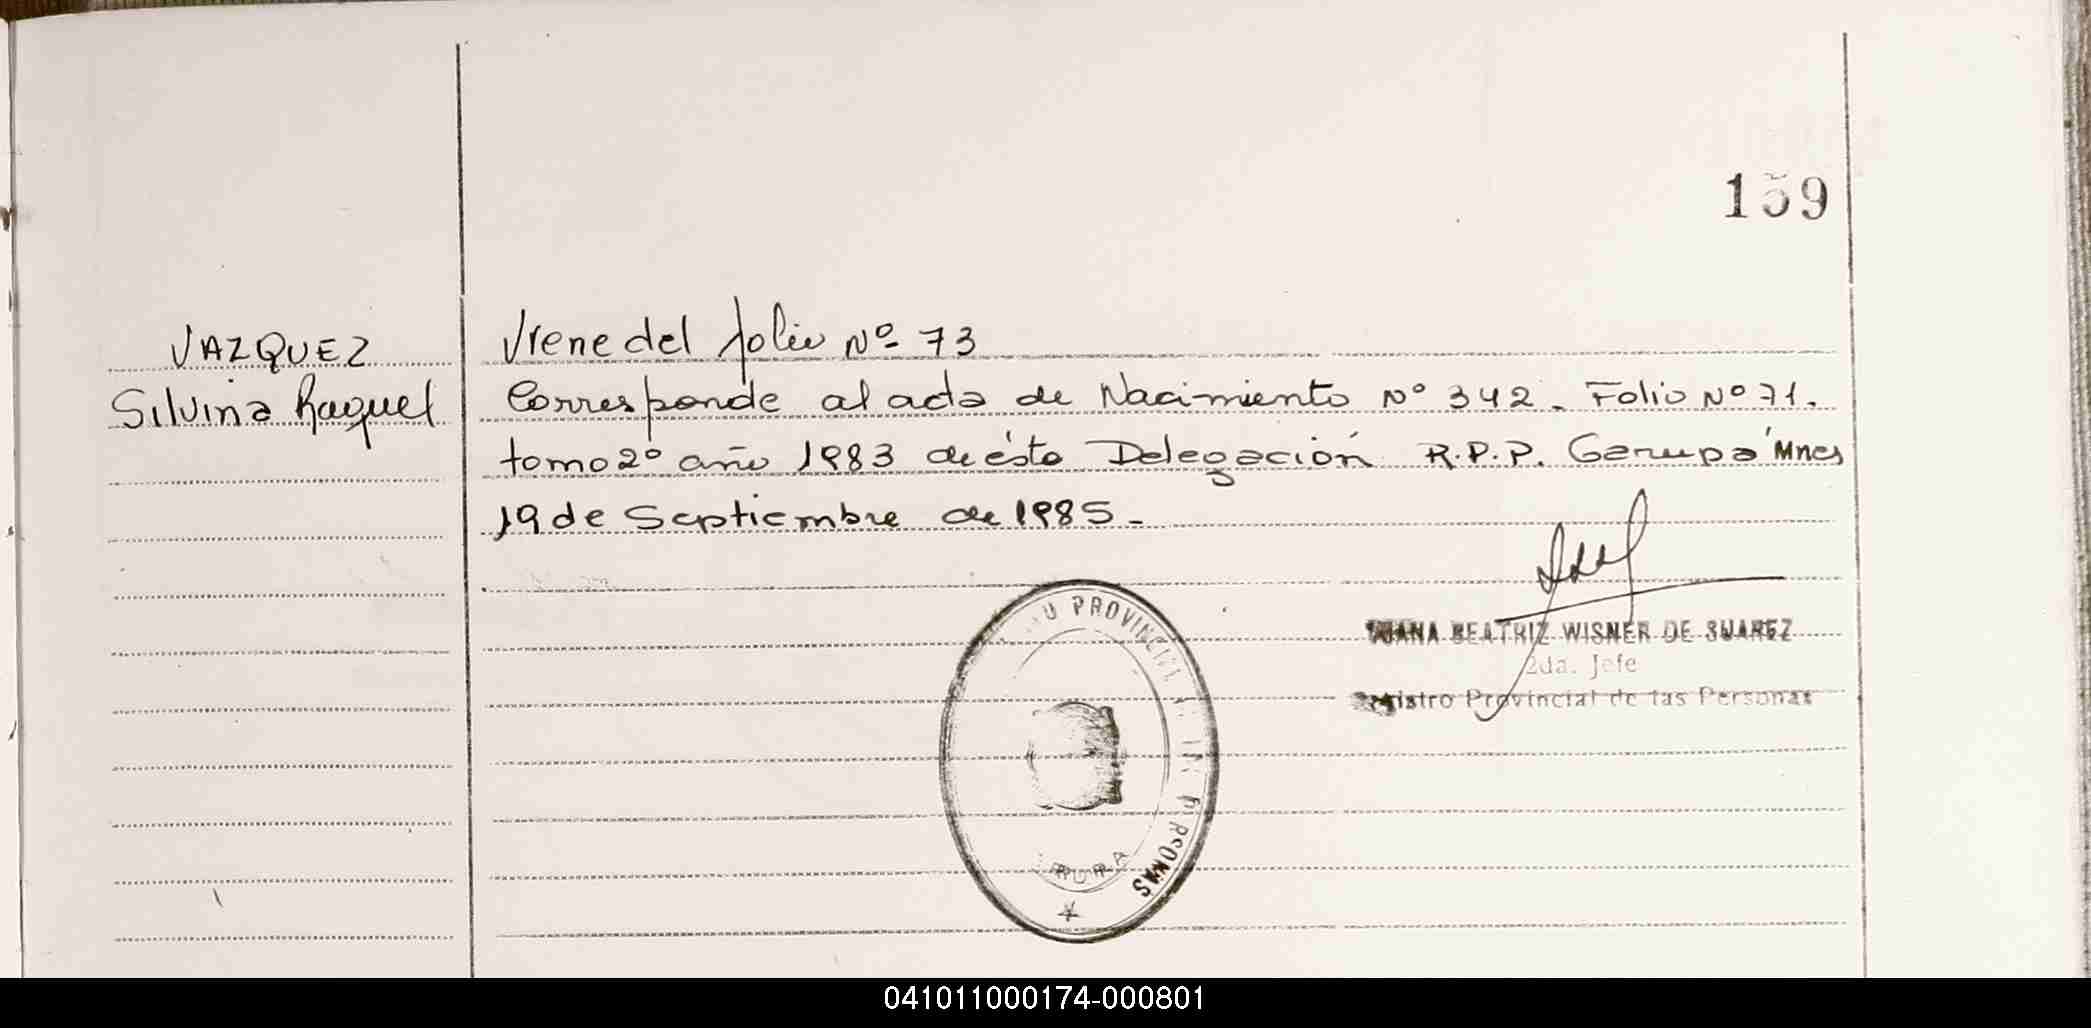 159
VAZQUEZ
Silvina Raquel
Viene del folio Nº 73
Corresponde al acta de Nacimiento Nº 342. Folio Nº 71.
tomo 2º año 1983 de ésta Delegación R.P.P. Garupá Mnes
19 de Septiembre de 1985.-
JUANA BEATRIZ WISNER DE SUAREZ
2da. Jefe
Registro Provincial de las Personas
PROVINCIAL PERSONAS
041011000174-000801